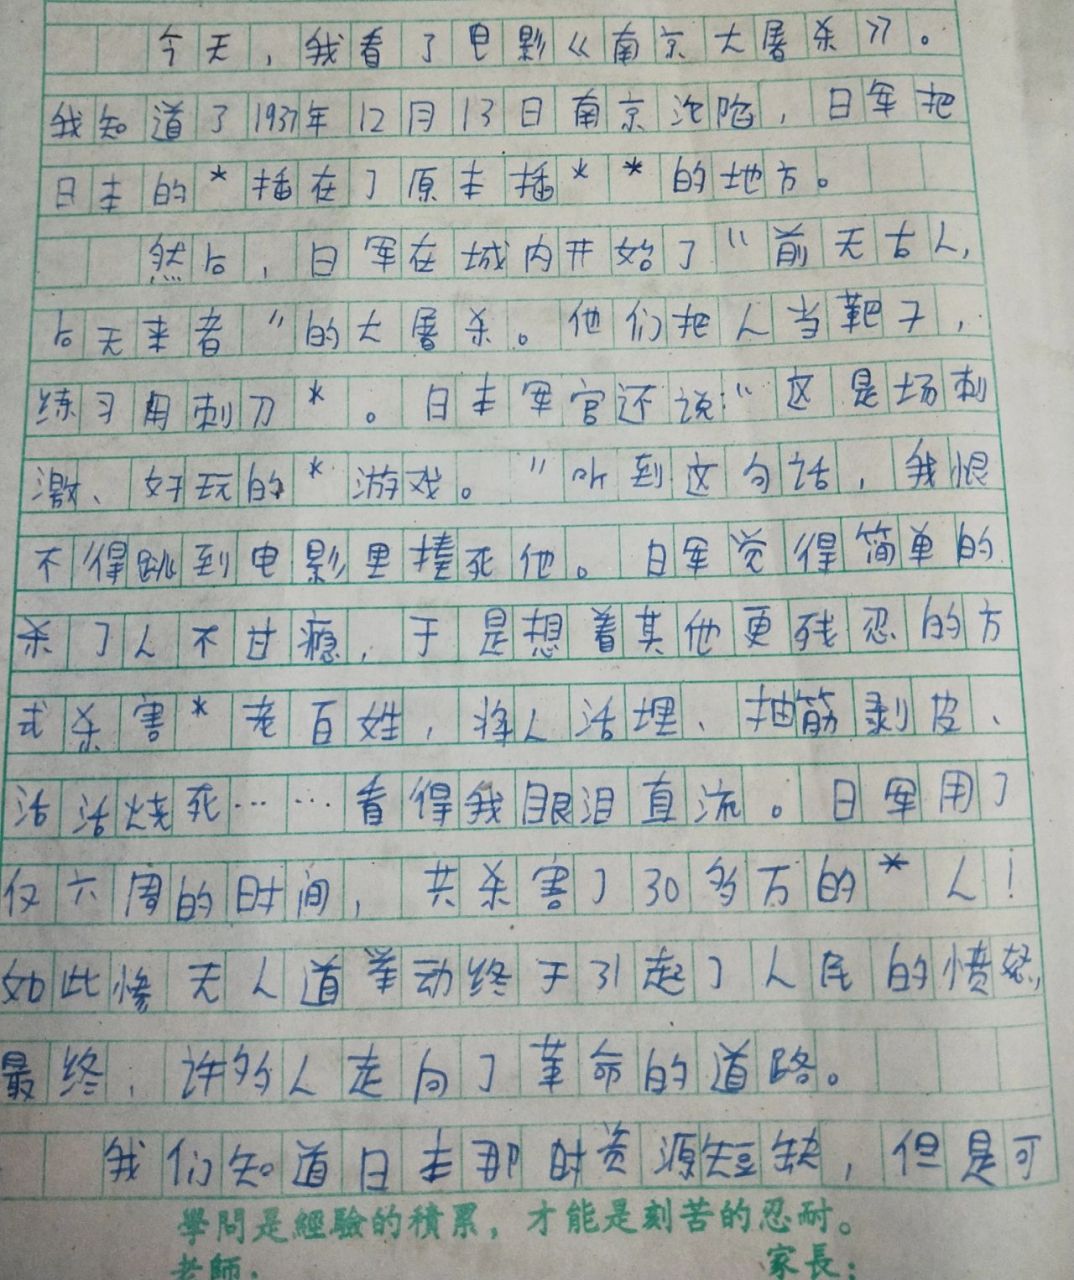 今天，我看了电影《南京大屠杀》。
我知道了1937年12月13日南京沦陷，日军把
日本的*插在了原本插**的地方。
然后，日军在城内开始了“前无古人，
后无来者”的大屠杀。他们把人当靶子，
练习用刺刀*。日本军官还说：“这是场刺
激、好玩的*游戏。”听到这句话，我恨
不得跳到电影里撞死他。日军觉得简单的
杀了人不甘瘾，于是想着其他更残忍的方
式杀害*老百姓，将人活埋、抽筋剥皮、
活活烧死……看得我眼泪直流。日军用了
仅六周的时间，共杀害了30多万的*人！
如此惨无人道举动终于引起了人民的愤怒，
最终，许多人走向了革命的道路。
我们知道日本那时资源短缺，但是可
學問是經驗的積累，才能是刻苦的忍耐。
老師：
家長：